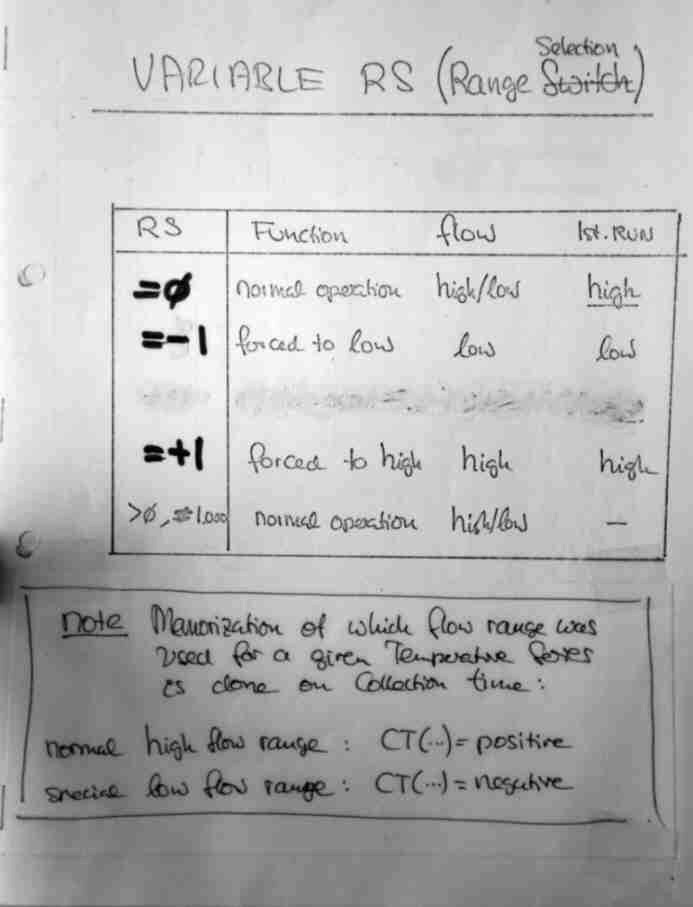 Selection
VARIABLE RS (Range Switch)
RS Function flow 1st. RUN
=ø normal operation high/low high
=-1 forced to low low low
=+1 forced to high high high
>ø, ≠1.000 normal operation high/low —
note Memorization of which flow range was
used for a given Temperature
is done on Collection time:
normal high flow range: CT(...)= positive
special low flow range: CT(...)= negative